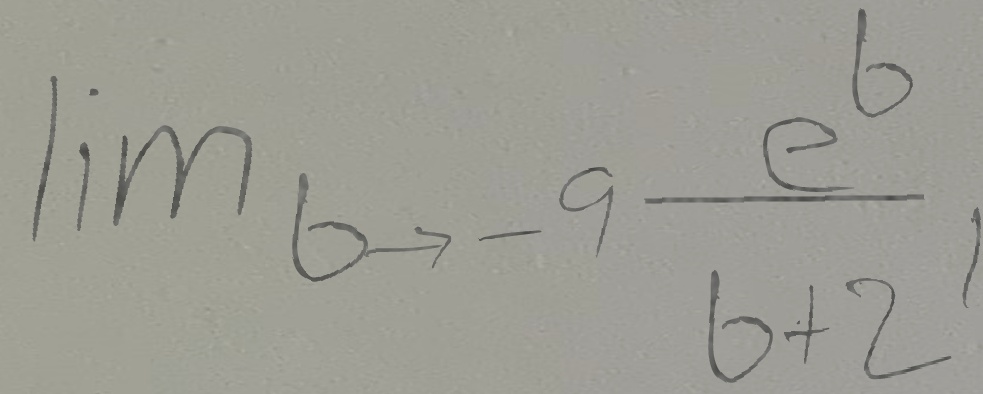 \lim_{b \to -9} \frac{e^b}{b+2}